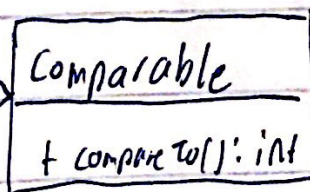 Comparable
+ compareTo(): int